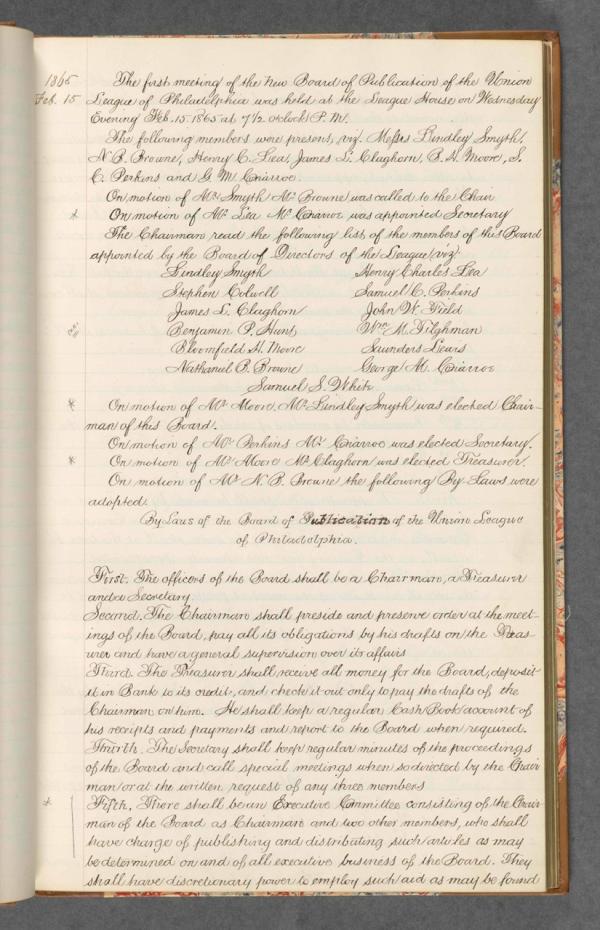 1865
Feb. 15
The first meeting of the New Board of Publication of the Union
League of Philadelphia was held at the League House on Wednesday
Evening Feb. 15. 1865 at 7 1/2 o'clock P. M.
The following members were present, viz. Messrs Lindley Smyth,
N. B. Browne, Henry C. Lea, James L. Claghorn, B. H. Moore, S.
C. Perkins and G. M. Conarroe.
On motion of Mr. Smyth Mr. Browne was called to the Chair
* On motion of Mr. Lea Mr. Conarroe was appointed Secretary
The Chairman read the following list of the members of this Board
appointed by the Board of Directors of the League (viz.
Lindley Smyth Henry Charles Lea
Stephen Colwell Samuel C. Perkins
James L. Claghorn John W. Field
Benjamin P. Hunt Wm. M. Tilghman
Bloomfield H. Moore Saunders Lewis
Nathaniel B. Browne George M. Conarroe
Samuel S. White
* On motion of Mr. Moore, Mr. Lindley Smyth was elected Chair-
man of this Board.
On motion of Mr. Perkins Mr. Conarroe was elected Secretary.
* On motion of Mr. Moore Mr. Claghorn was elected Treasurer.
On motion of Mr. N. B. Browne the following By-Laws were
adopted.
By Laws of the Board of Publication of the Union League
of Philadelphia.
First. The officers of the Board shall be a Chairman, a Treasurer
and a Secretary.
Second. The Chairman shall preside and preserve order at the meet-
ings of the Board, pay all its obligations by his drafts on the Treas-
urer and have a general supervision over its affairs
Third. The Treasurer shall receive all money for the Board, deposit
it in Bank to its credit, and check it out only to pay the drafts of the
Chairman on him. He shall keep a regular Cash Book account of
his receipts and payments and report to the Board when required.
Fourth. The Secretary shall keep regular minutes of the proceedings
of the Board and call special meetings when so directed by the Chair
man or at the written request of any three members
* Fifth. There shall be an Executive Committee consisting of the Chair
man of the Board as Chairman and two other members, who shall
have charge of publishing and distributing such articles as may
be determined on and of all executive business of the Board. They
shall have discretionary power to employ such aid as may be found